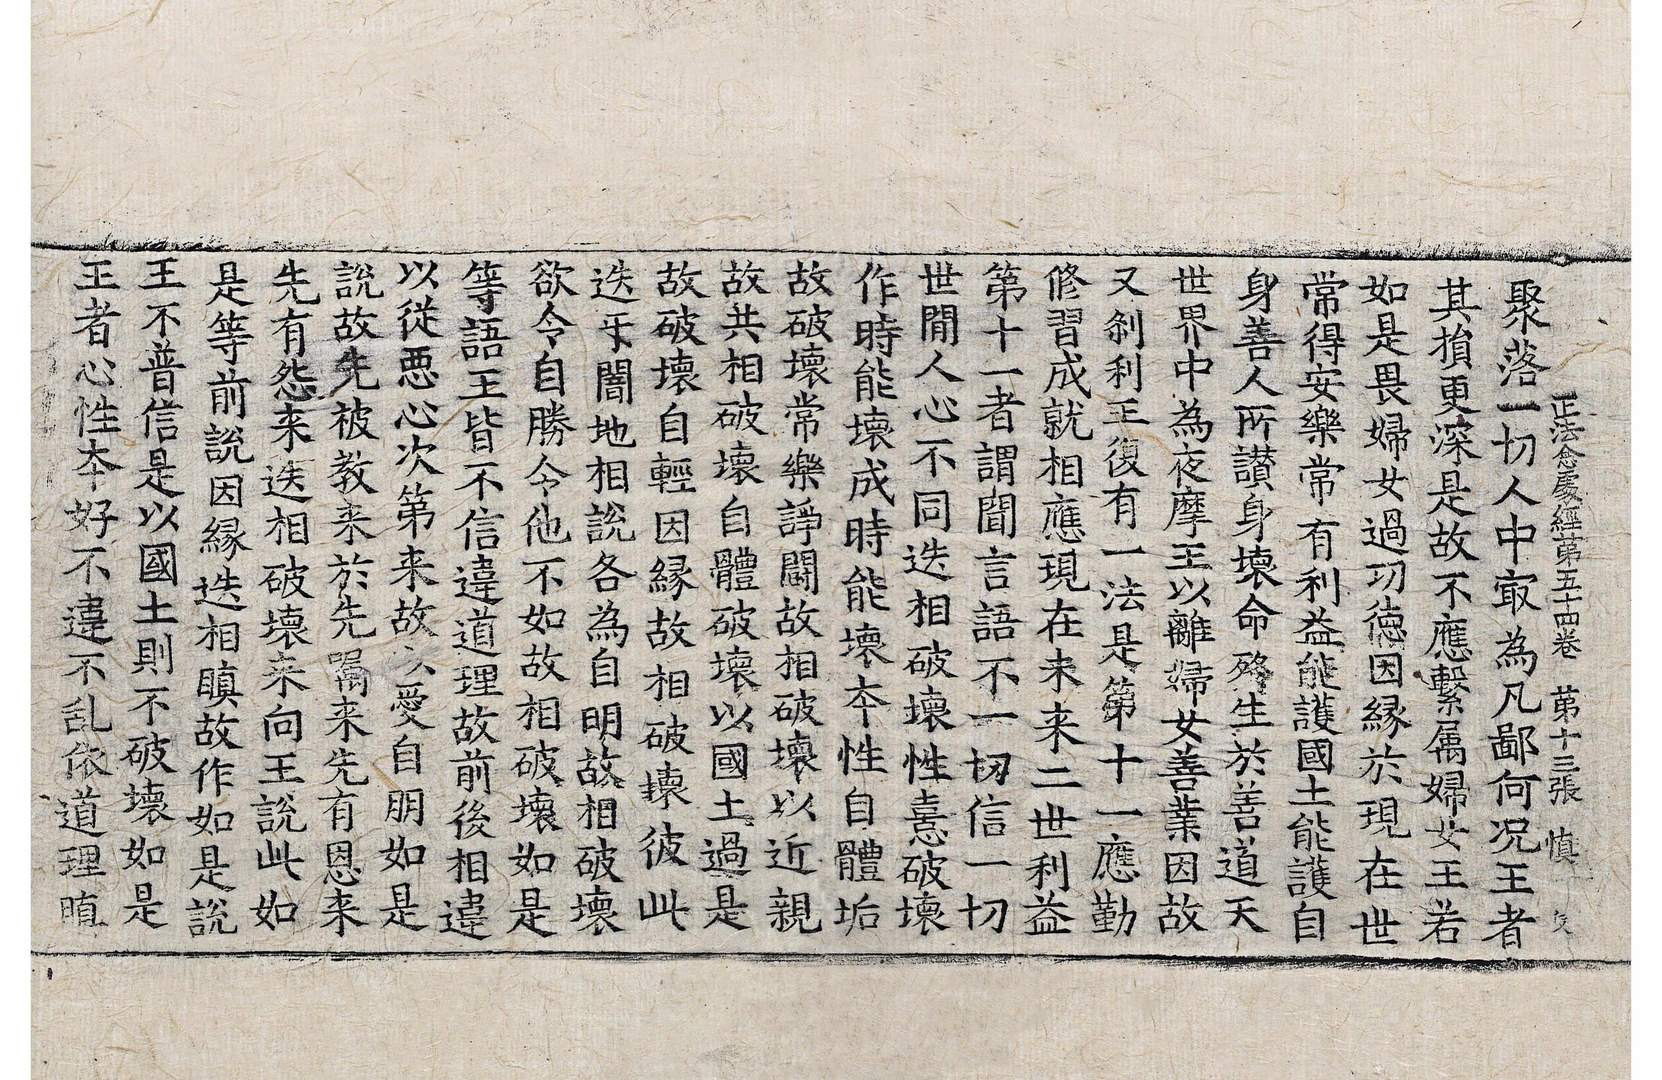 正法念處經第五十四卷 第十三張 慎
聚落一切人中㝡為凡鄙何况王者
其損更深是故不應繫属婦女王若
如是畏婦女過功徳因縁於現在世
常得安樂常有利益能護國土能護自
身善人所讃身壞命終生於善道天
世界中為夜摩王以離婦女善業因故
又刹利王復有一法是第十一應勤
修習成就相應現在未来二世利益
第十一者謂聞言語不一切信一切
世間人心不同迭相破壞性憙破壞
作時能壞成時能壞夲性自體垢
故破壞常樂諍鬪故相破壞以近親
故共相破壞自體破壞以國土過是
故破壞自輕因縁故相破壞彼此
迭㸦闇地相說各為自明故相破壞
欲令自勝令他不如故相破壞如是
等語王皆不信違道理故前後相違
以從悪心次第来故以愛自朋如是
說故先被教来於先嘱来先有恩来
先有怨来迭相破壞来向王說此如
是等前說因縁迭相瞋故作如是說
王不普信是以國土則不破壞如是
王者心性夲好不違不乱依道理瞋